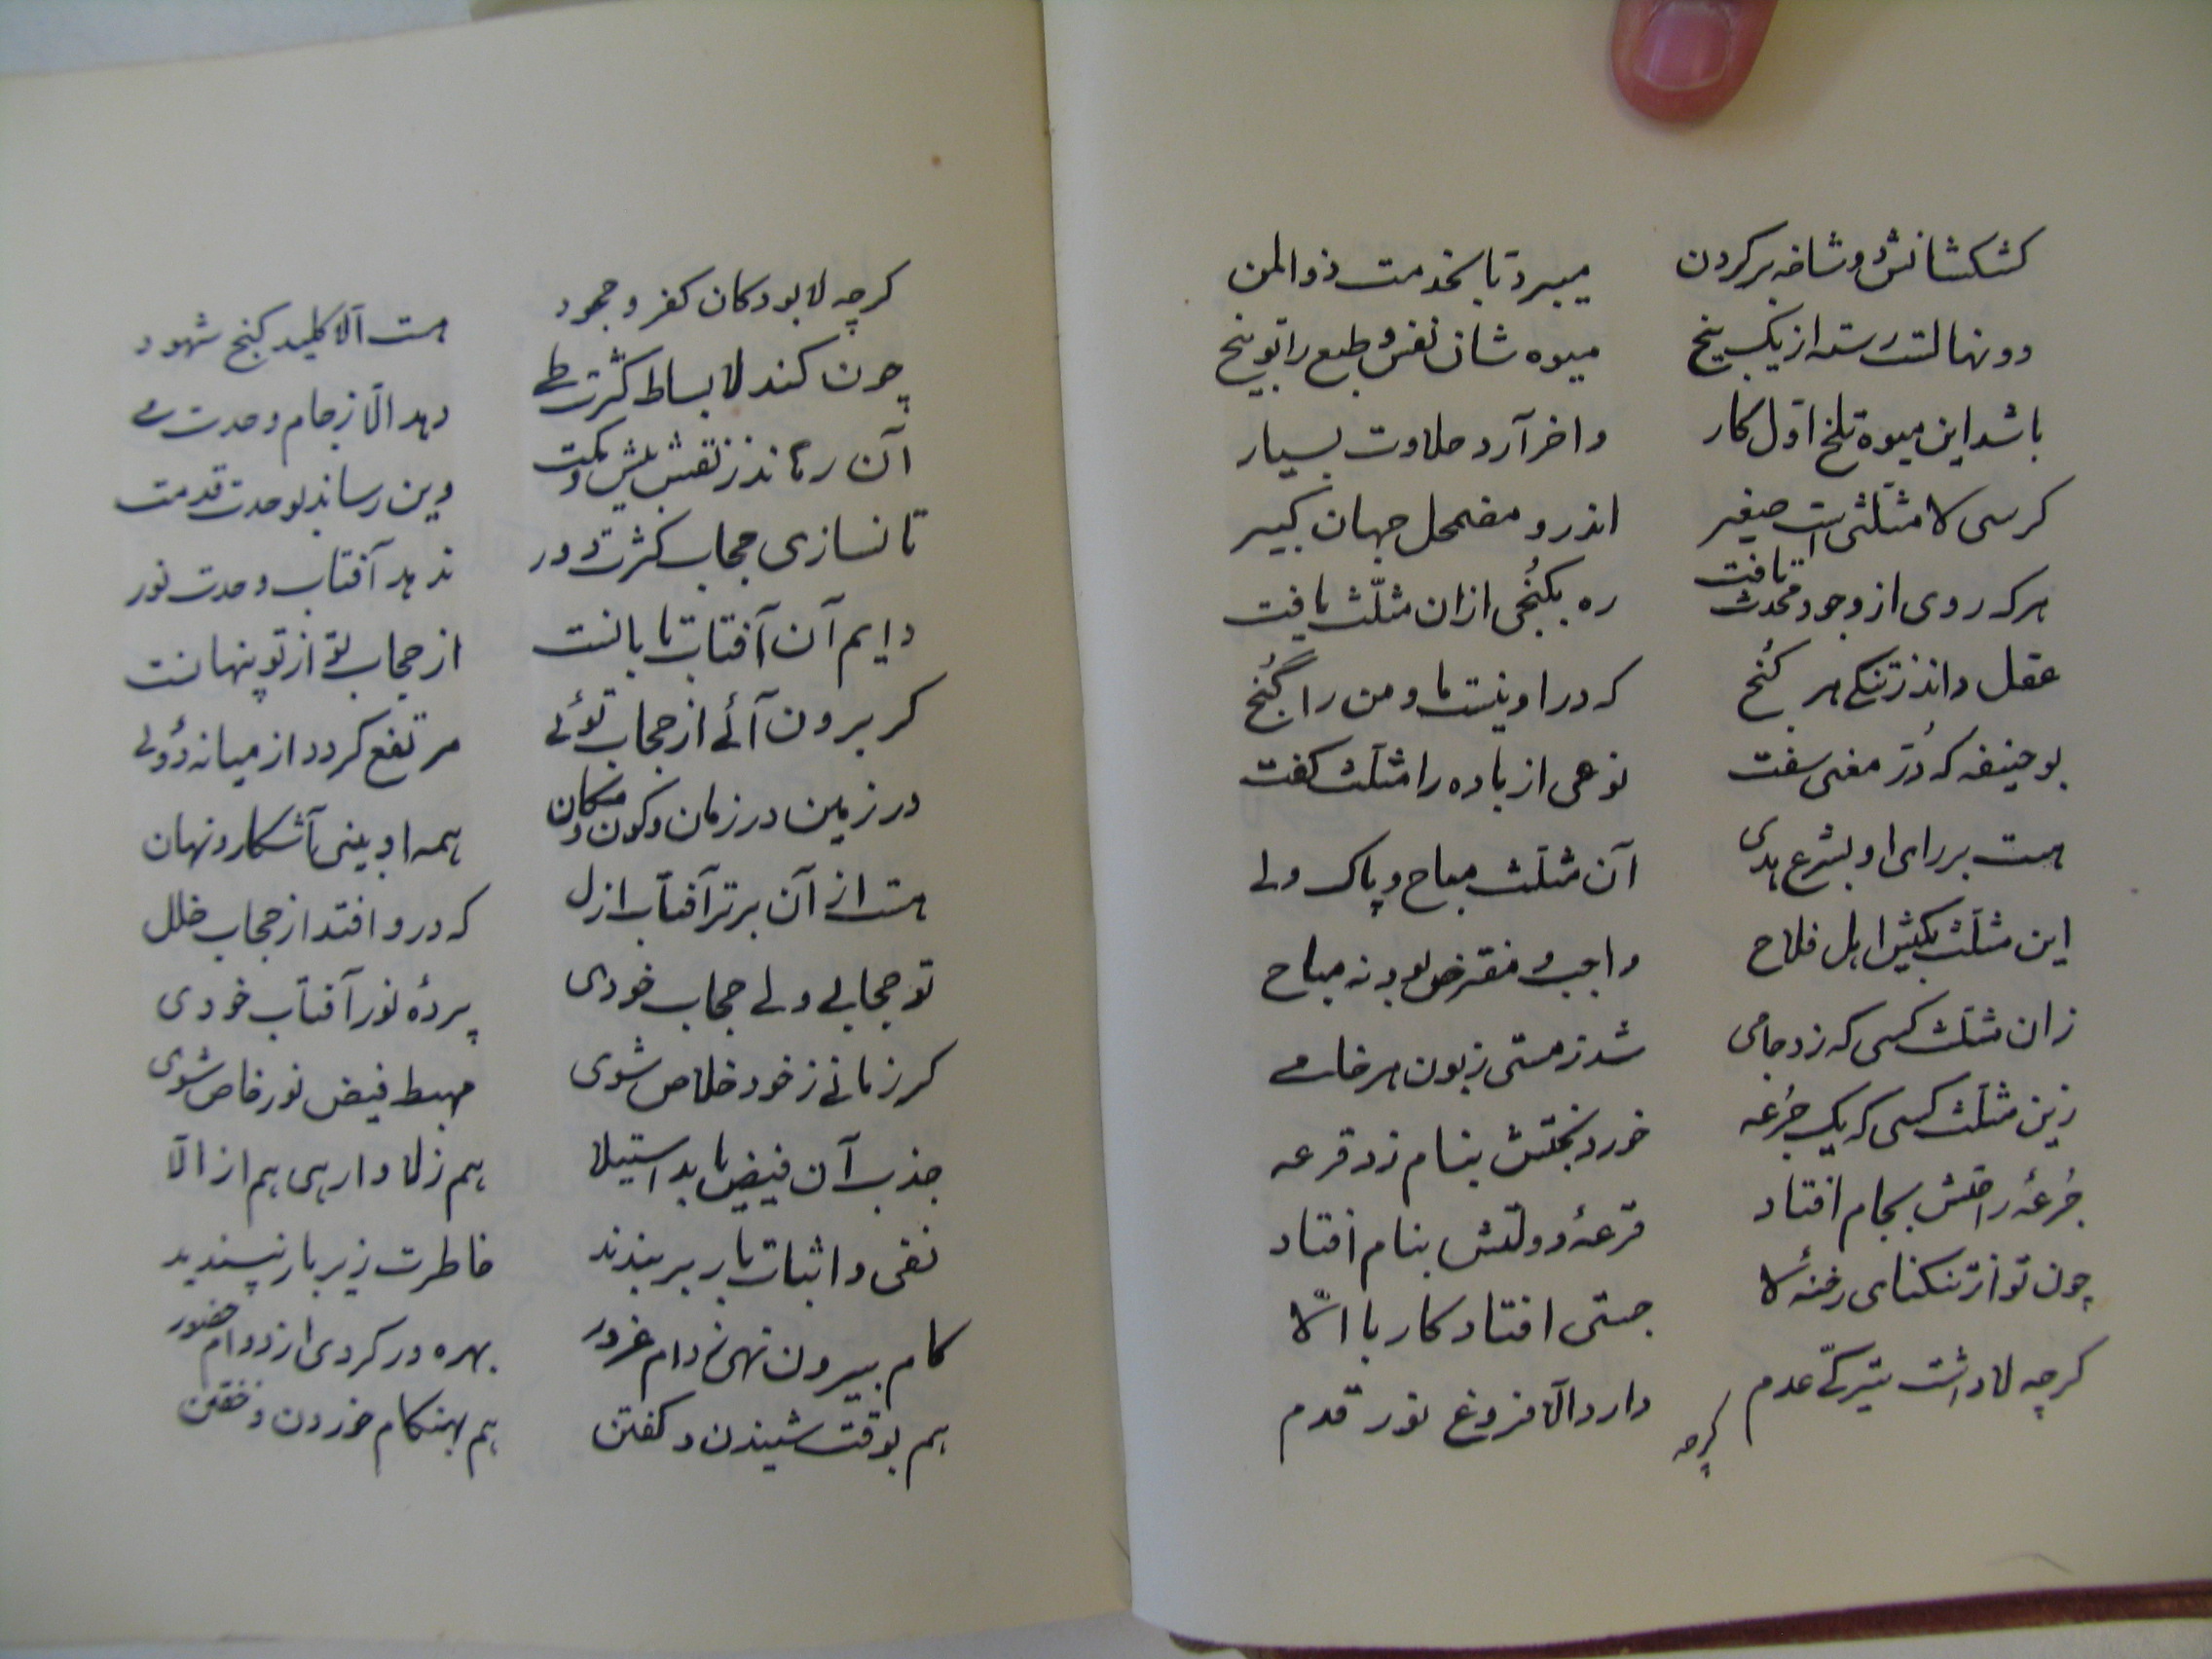 کشکشانش دو شاخه بر کردن میبرد تا بخدمت ذو المن
دو نهالست رسته از یک بیخ میوه شان نفس و طبع را توبیخ
باشد این میوه تلخ اوّل کار واخر آرد حلاوت بسیار
کرسی لا مثلّثی است صغیر اندرو مضمحل جهان کبیر
هر که روی از وجود محدث تافت ره بکُنجی ازان مثلّث یافت
عقل داند ز تنکی هر کُنج که در او نیست ما و من را گُنج
بو حنیفه که دُرّ معنی سفت نوعی از باده را مثلّث کفت
هست بر رای او بشرع هدی آن مثلّث مباح و پاک ولی
این مثلّث بکیش اهل فلاح واجب و مفترض بود نه مباح
زان مثلّث کسی که زد جامی شد ز مستی زبون هر خامی
زین مثلّث کسی که یک جُرعه خورد بختش بنام زد قرعه
جُرعهٔ راحتش بجام افتاد قرعهٔ دولتش بنام افتاد
چون تو از تنکنای رخنهٔ لا جستی افتاد کار با الّا
کرچه لا داشت تیرکیّ عدم دارد الّا فروغ نور قدم
کرچه
کرچه لا بود کان کفر و جحود هست الّا کلید کنج شهود
چون کند لا بساط کثرت طی دهد الّا ز جام وحدت می
آن رهاند ز نقش بیش و کمت وین رساند بوحدت قدمت
تا نسازی حجاب کثرت دور ندهد آفتاب وحدت نور
دایم آن آفتاب تابانست از حجاب تو از تو پنهانست
کر برون آئی از حجاب توئی مرتفع کردد از میانه دُوئی
در زمین در زمان و کون و مکان همه او بینی آشکار و نهان
هست از آن برتر آفتاب ازل که درو افتد از حجاب خلل
تو حجابی ولی حجاب خودی پردهٔ نور آفتاب خودی
کر زمانی ز خود خلاص شوی مهبط فیض نور خاص شوی
جذب آن فیض یابد استیلا هم ز لا وارهی هم از الّا
نفی و اثبات بار بربندند خاطرت زیر بار نپسندید
کام بیرون نهی ز دام غرور بهره ور کردی از دوام حضور
هم بوقت شنیدن و کفتن هم بهنکام خوردن و خفتن